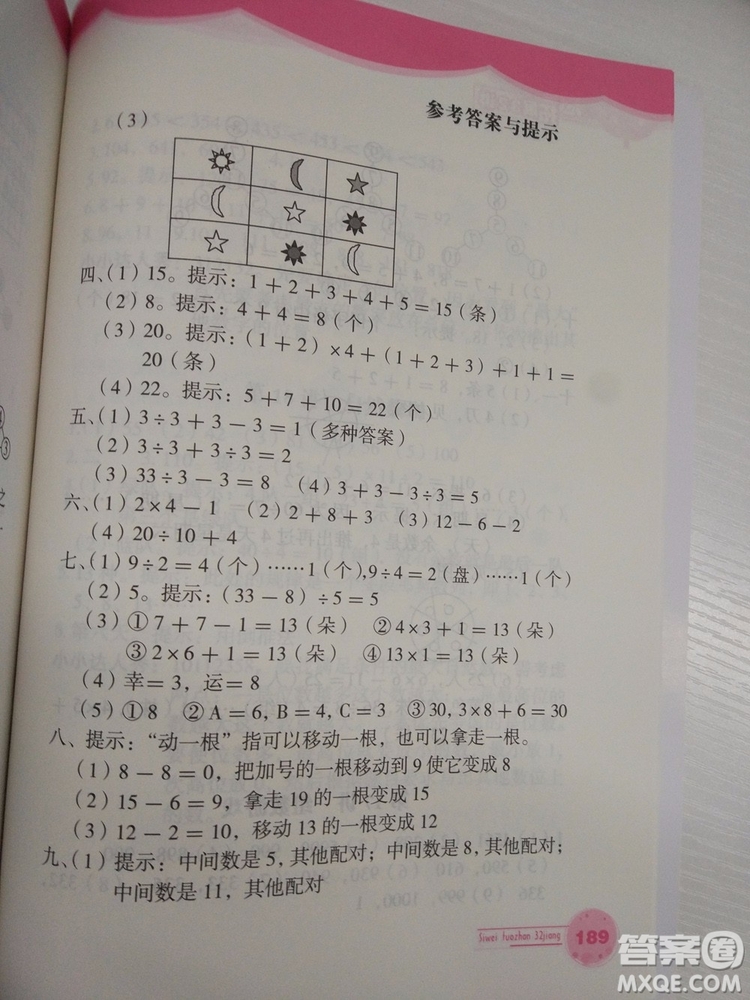 参考答案与提示
(3)
四、(1) 15。提示：1＋2＋3＋4＋5＝15(条)
(2) 8。提示：4＋4＝8(个)
(3) 20。提示：(1＋2)×4＋(1＋2＋3)＋1＋1＝
20(条)
(4) 22。提示：5＋7＋10＝22(个)
五、(1) 3÷3＋3－3＝1(多种答案)
(2) 3÷3＋3÷3＝2
(3) 33÷3－3＝8 (4) 3＋3－3÷3＝5
六、(1) 2×4－1 (2) 2＋8＋3 (3) 12－6－2
(4) 20÷10＋4
七、(1) 9÷2＝4(个)……1(个),9÷4＝2(盘)……1(个)
(2) 5。提示：(33－8)÷5＝5
(3) ①7＋7－1＝13(朵) ②4×3＋1＝13(朵)
③2×6＋1＝13(朵) ④13×1＝13(朵)
(4) 幸＝3，运＝8
(5) ①8 ②A＝6, B＝4, C＝3 ③30, 3×8＋6＝30
八、提示：“动一根”指可以移动一根，也可以拿走一根。
(1) 8－8＝0，把加号的一根移动到9使它变成8
(2) 15－6＝9，拿走19的一根变成15
(3) 12－2＝10，移动13的一根变成12
九、(1) 提示：中间数是5, 其他配对；中间数是8, 其他配对；
中间数是11，其他配对
Siwei tuozhan 32jiang 189
答案圈
MXQE.COM